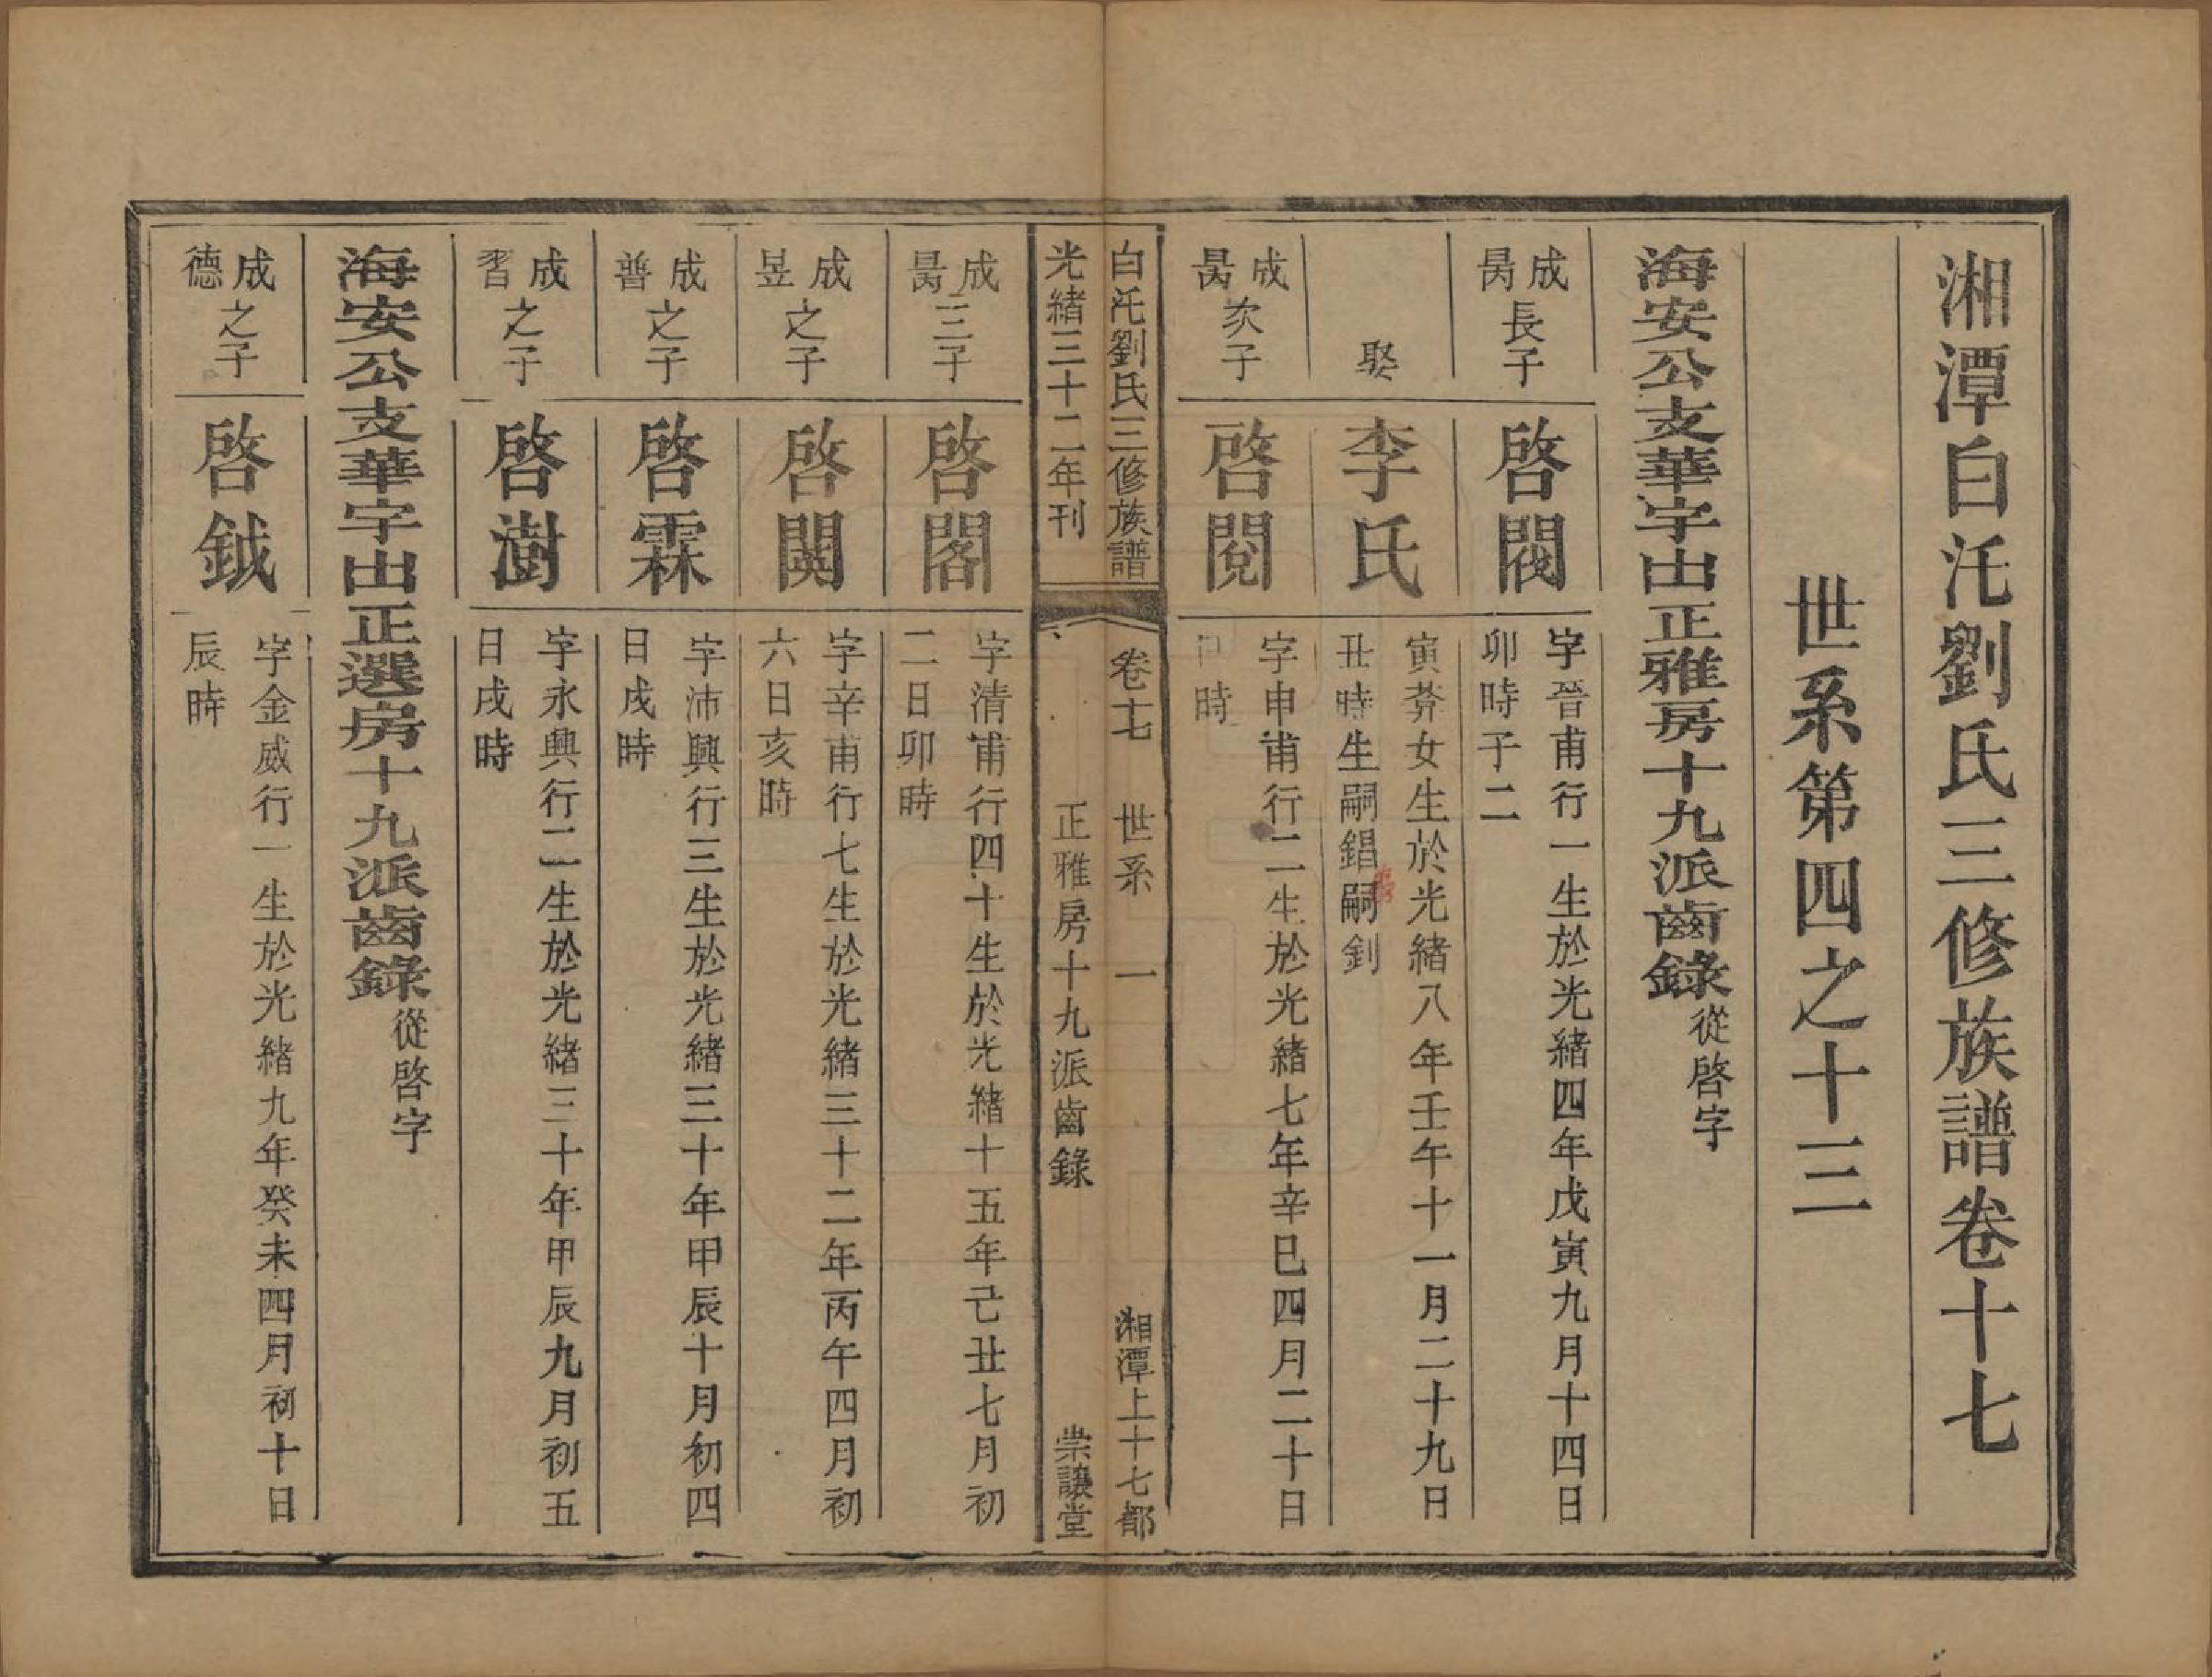 湘潭白汑劉氏三修族譜卷十七
世系第四之十三
海安公支華宇山正雅房十九派齒錄從啓字
成昺長子
啓閥
字晉甫行一生於光緒四年戊寅九月十四日
卯時子二
娶
李氏
寅莽女生於光緒八年壬午十一月二十九日
丑時生嗣錩嗣釗
成昺次子
啓閱
字申甫行二生於光緒七年辛巳四月二十日
時
白汑劉氏三修族譜
卷十七
世系
一
湘潭上十七都
光緒三十二年刊
正雅房十九派齒錄
崇讓堂
成昺三子
啓閣
字清甫行四十生於光緒十五年己丑七月初
二日卯時
成昱之子
啓闓
字辛甫行七生於光緒三十二年丙午四月初
六日亥時
成普之子
啓霖
字沛興行三生於光緒三十年甲辰十月初四
日戌時
成習之子
啓澍
字永興行二生於光緒三十年甲辰九月初五
日戌時
海安公支華宇山正選房十九派齒錄從啓字
成德之子
啓鉞
字金威行一生於光緒九年癸未四月初十日
辰時